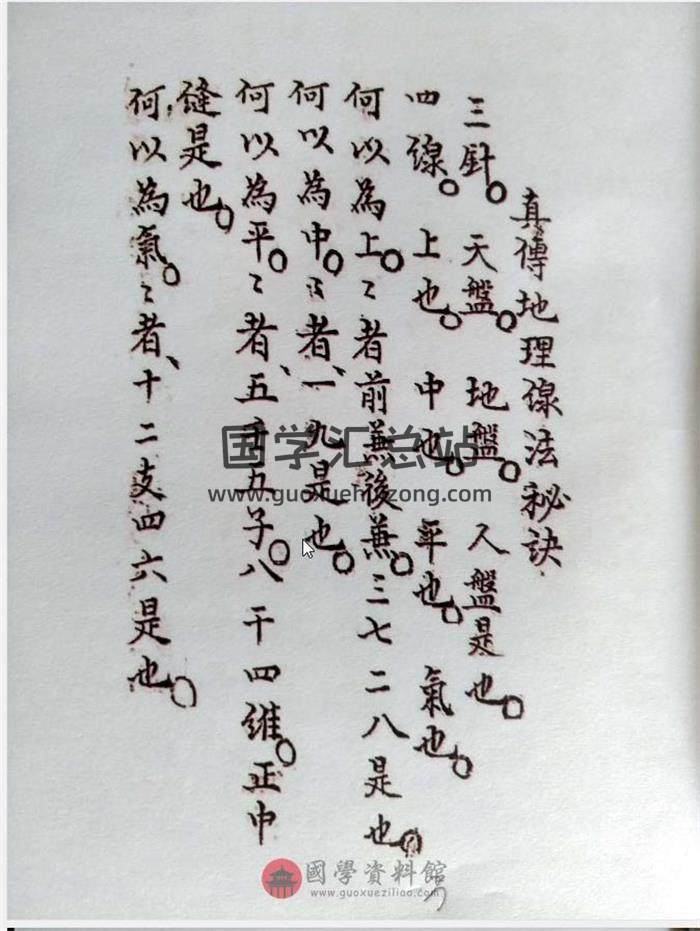 真傳地理線法秘訣
三針。天盤。地盤。人盤是也。
四線。上也。中也。平也。氣也。
何以為上。〻者前兼後兼。三七二八是也。
何以為中。〻者、一九是也。
何以為平。〻者、五壬五子。八干四維。正中
縫是也。
何以為氣。〻者、十二支四六是也。
国学汇总站
www.guoxuehuizong.com
國學資料館
www.guoxueziliao.com